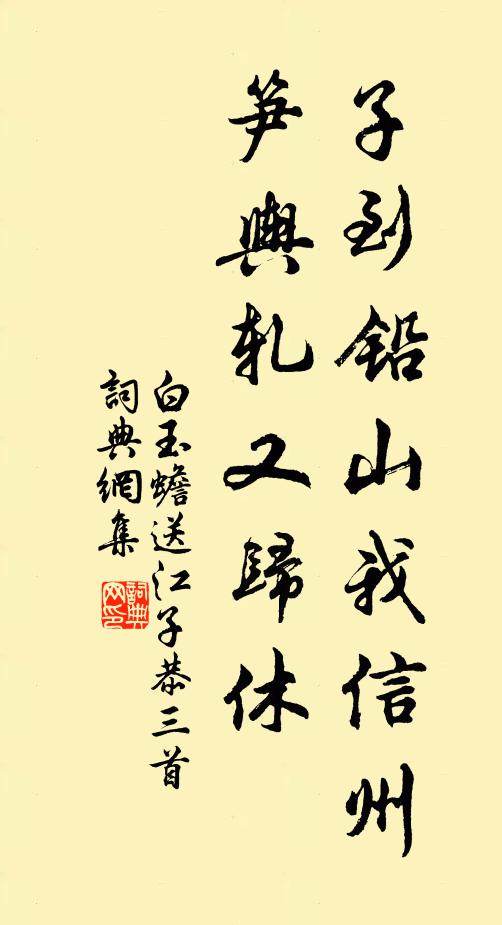 子到鉛山我信州
笋輿軋又歸休
白玉蟾送江子恭三首
詞典網集
詞典網印